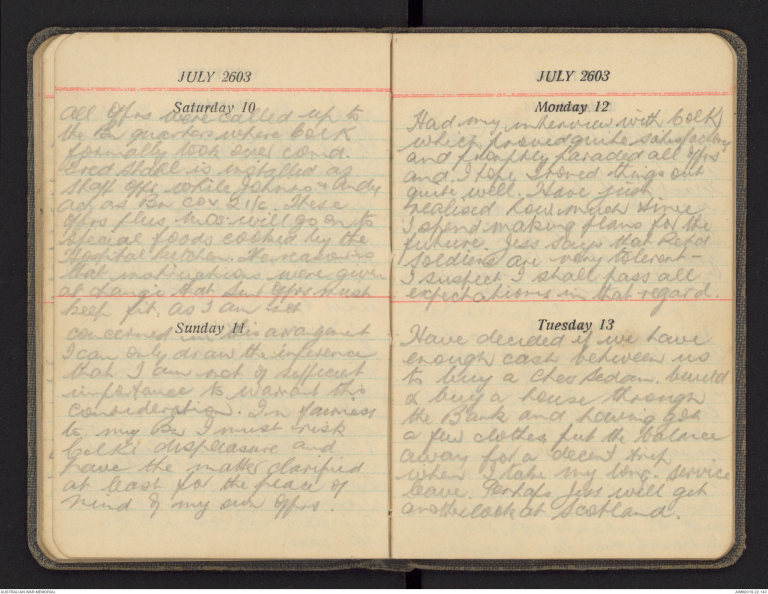 JULY 2603
Saturday 10
All Offrs were called up to
the Bn quarters where Col K
formally took over comd.
Fred Stahl is installed as
Staff Offr while Johnno & Andy
act as Bn CO's 2 i/c. These
Offrs plus M.O's will go on to
special foods cooked by the
Hospital kitchen. The reason is
that instructions were given
at change that Snr Offrs must
keep fit, as I am not
Sunday 11
concerned in this arragemt
I can only draw the inference
that I am not of sufficient
importance to warrant this
consideration. In fairness
to my Bn I must risk
Col K's displeasure and
have the matter clarified
at least for the peace of
mind of my own Offrs.
JULY 2603
Monday 12
Had my interview with Col K
which proved quite satisfactory
and promptly paraded all Offrs
and I hope I ironed things out
quite well. Have just
realised how much time
I spend making plans for the
future. Jess says that Retd
Soldiers are very tolerent -
I suspect I shall pass all
expectations in that regard.
Tuesday 13
Have decided if we have
enough cash between us
to buy a Chev Sedan, build
or buy a house through
the Bank and having got
a few clothes put the balance
away for a decent trip
when I take my long service
leave. Perhaps Jess will get
another look at Scotland.
AUSTRALIAN WAR MEMORIAL